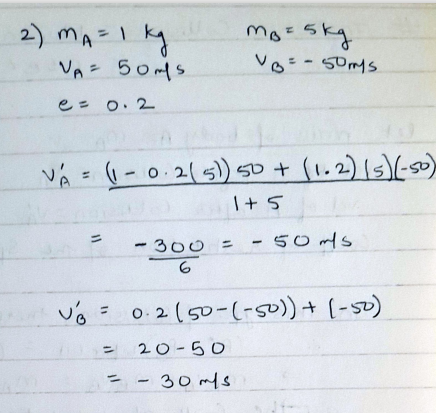 2) mA = 1 kg mB = 5kg
VA = 50 m/s VB = - 50 m/s
e = 0.2
V'A = (1 - 0.2(5)) 50 + (1.2)(5)(-50)
1 + 5
= -300 = - 50 m/s
6
V'B = 0.2 (50 - (-50)) + (-50)
= 20 - 50
= - 30 m/s